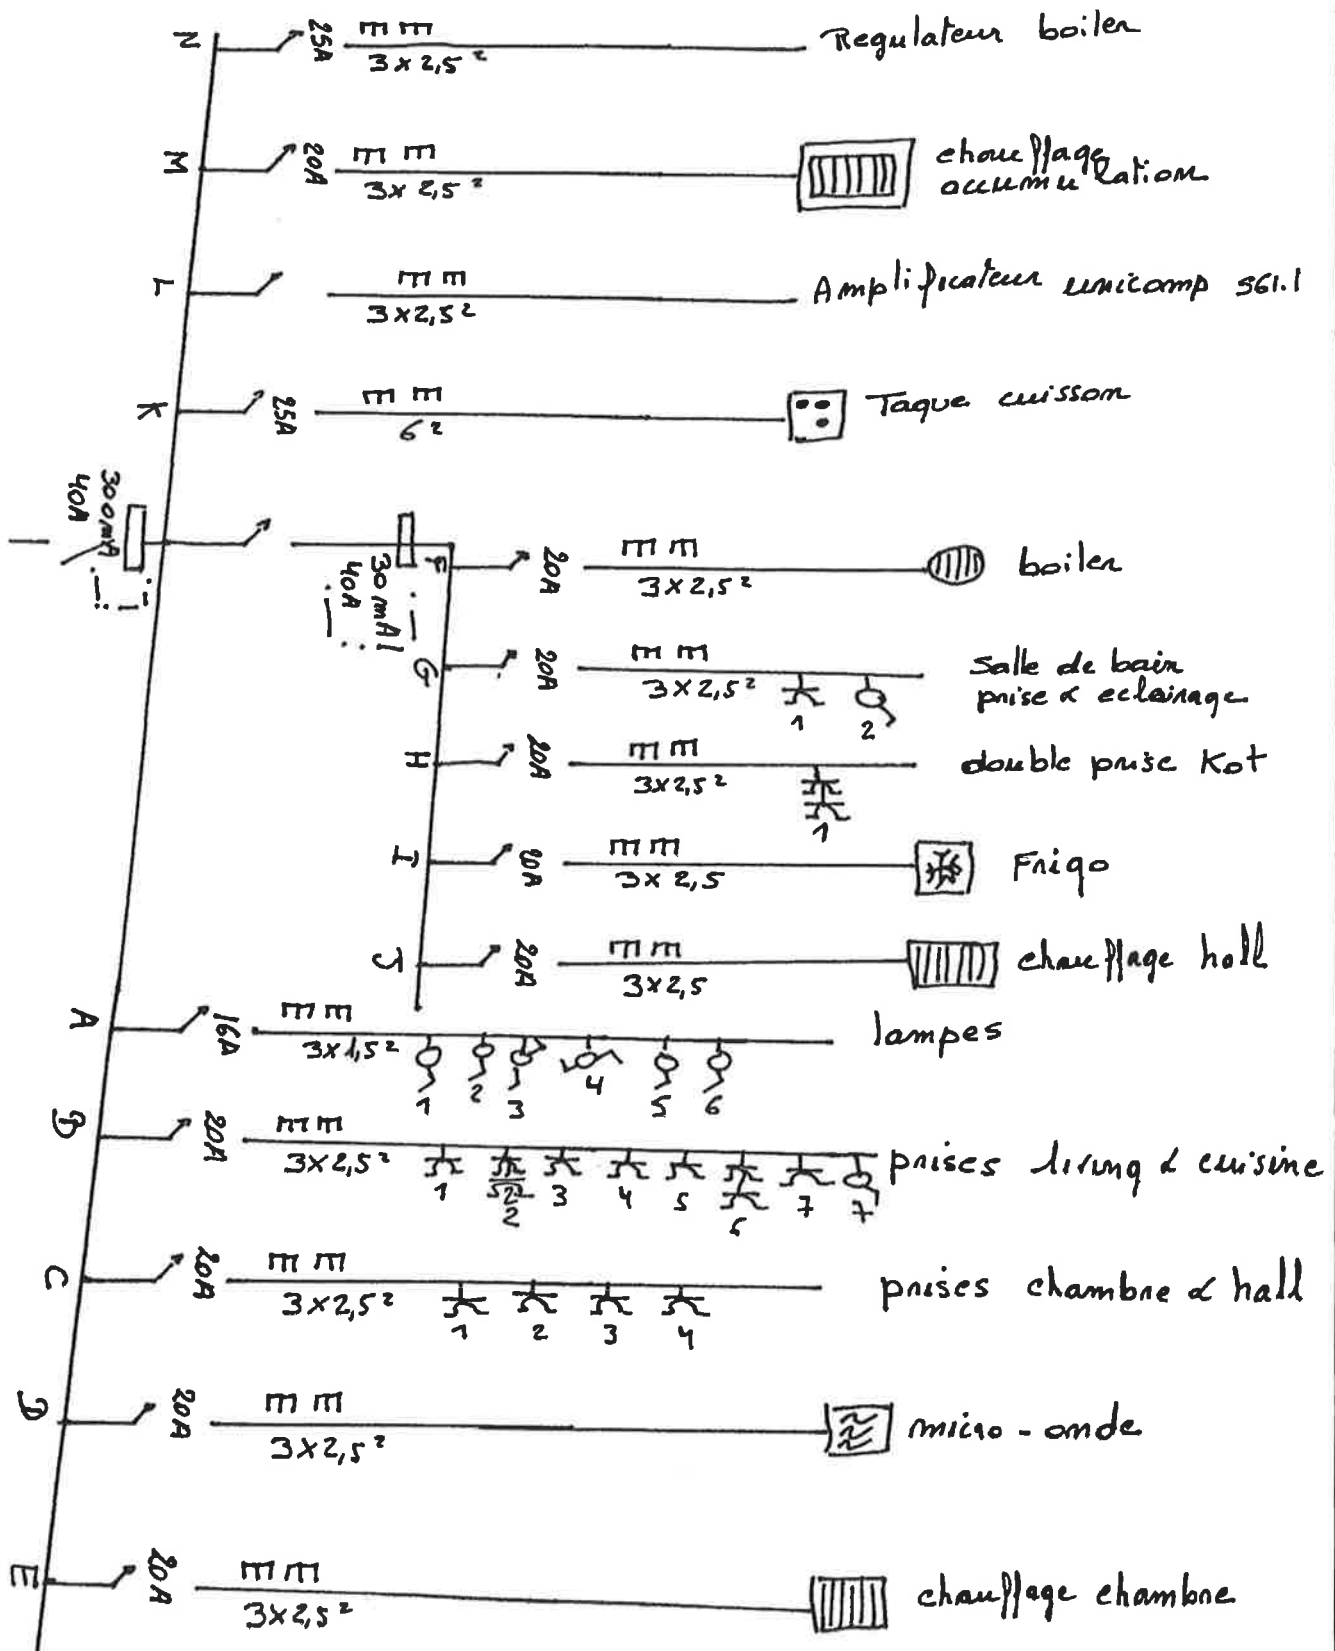 N 25A 3x2,5² Regulateur boiler
M 20A 3x2,5² chauffage
accumulation
L 3x2,5² Amplificateur unicomp 961.1
K 25A 6² Taque cuisson
300mA
40A
30mA
40A
F 20A 3x2,5² boiler
G 20A 3x2,5² 1 2 Salle de bain
prise & eclairage
H 20A 3x2,5² 1 double prise Kot
I 20A 3x2,5 Frigo
J 20A 3x2,5 chauffage hall
A 16A 3x1,5² 1 2 3 4 5 6 lampes
B 20A 3x2,5² 1 2 3 4 5 6 7 7 prises living & cuisine
C 20A 3x2,5² 1 2 3 4 prises chambre & hall
D 20A 3x2,5² micro-onde
E 20A 3x2,5² chauffage chambre